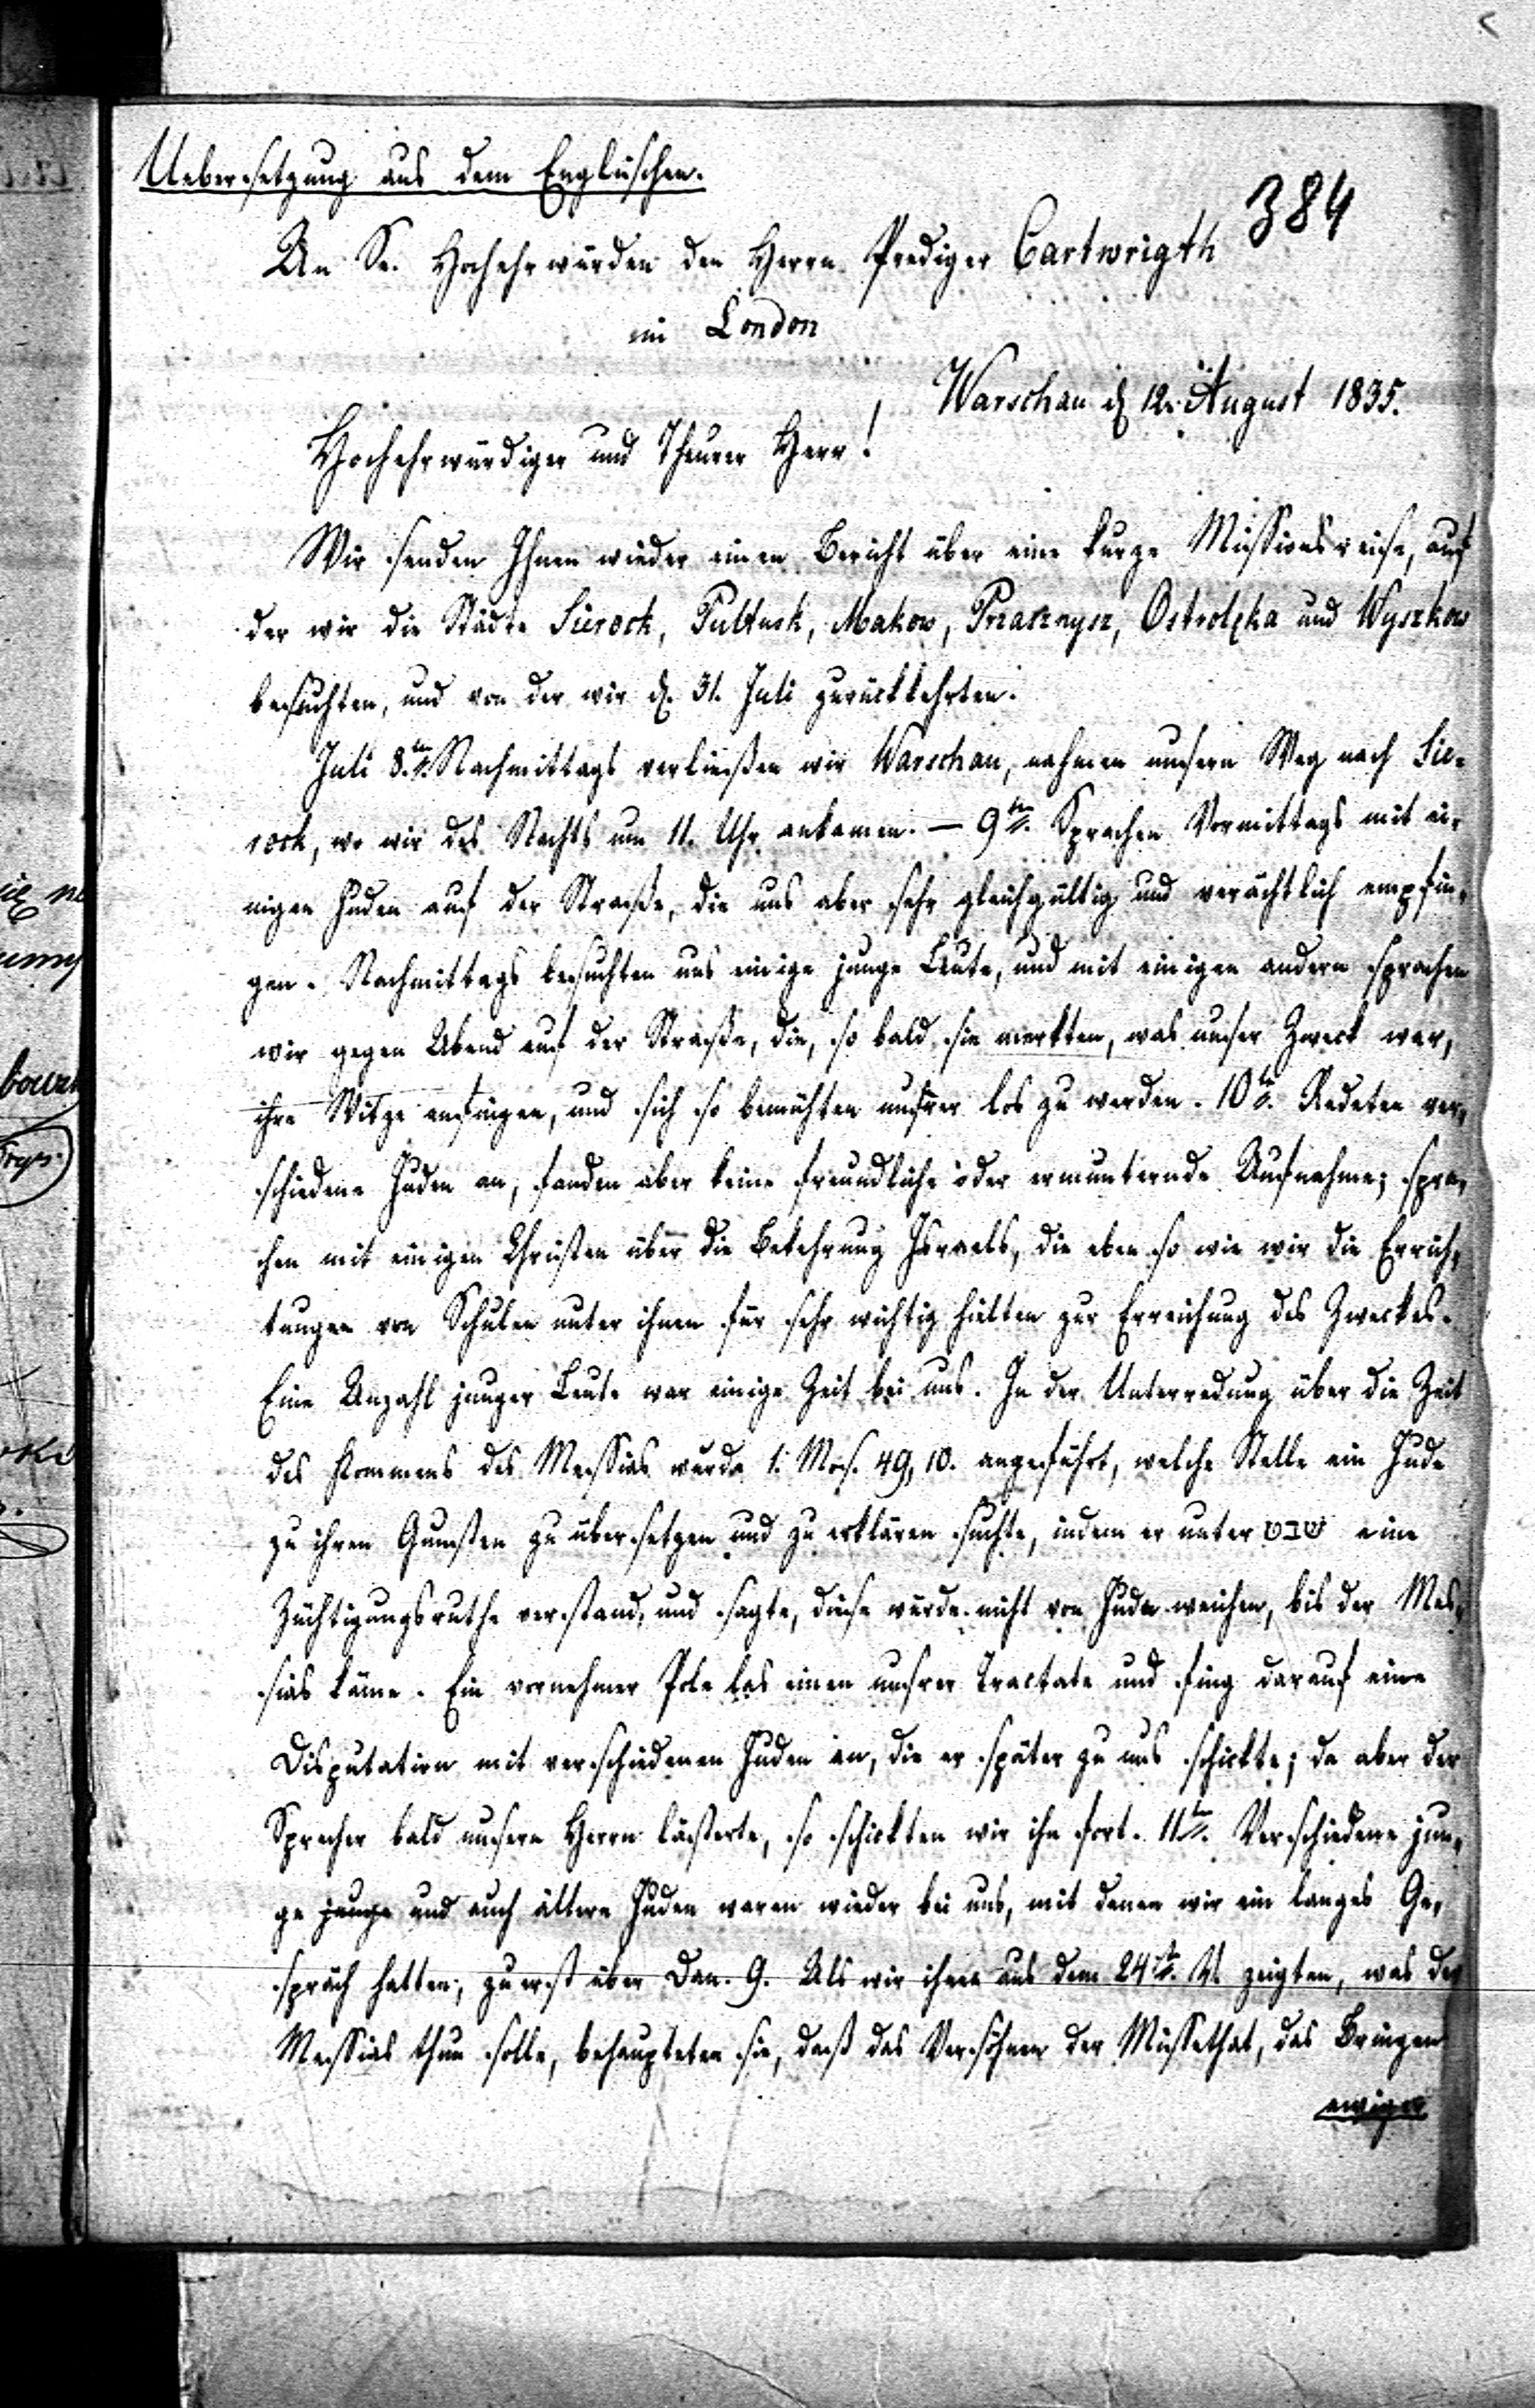 Uebersetzung aus dem Englischen.
384
An Sr. Hochehrwürden den Herrn Prediger Cartwrigth
in London
Warschau d. 12. August 1835.
Hochehrwürdiger und Theurer Herr!
Wir senden Ihnen wieder einen Bericht über eine kurze Missionsreise, auf
der wir die Städte Sierock, Pultusk, Makow, Przasznysz, Ostrolęka und Wyszkow
besuchten, und von der wir d. 31. Juli zurückkehrten.
Juli 8.ten Nachmittags verließen wir Warschau, nahmen unsern Weg nach Sie-
rock, wo wir des Nachts um 11. Uhr ankamen. — 9ten. Sprachen Vormittags mit ei-
nigen Juden auf der Straße, die uns aber sehr gleichgültig und verächtlich empfin-
gen. Nachmittags besuchten uns einige junge Leute, und mit einigen andern sprachen
wir gegen Abend auf der Straße, die, so bald sie merkten, was unser Zweck war,
ihre Witze anfingen, und sich so bemühten unsrer los zu werden. 10ten. Redeten ver-
schiedene Juden an, fanden aber keine freundliche oder ermunternde Aufnahme; spra-
chen mit einigen Christen über die Bekehrung Israels, die eben so wie wir die Errich-
tungen von Schulen unter ihnen für sehr wichtig hielten zur Erreichung des Zweckes.
Eine Anzahl junger Leute war einige Zeit bei uns. In der Unterredung über die Zeit
des Kommens des Messias wurde 1. Mos. 49, 10. angeführt, welche Stelle ein Jude
zu ihren Gunsten zu übersetzen und zu erklären suchte, indem er unter שבט eine
Züchtigungsruthe verstand, und sagte, diese würde nicht von Juda weichen, bis der Mes-
sias käme. Ein vornehmer Pole las einen unsrer Tractate und fing darauf eine
Disputation mit verschiedenen Juden an, die er später zu uns schickte; da aber der
Sprecher bald unsern Herrn lästerte, so schickten wir ihn fort. 11ten. Verschiedene jun-
ge junge und auch ältere Juden waren wieder bei uns, mit denen wir ein langes Ge-
spräch hatten; zuerst über Dan. 9. Als wir ihnen aus dem 24ten. V. zeigten, was der
Messias thun solle, behaupteten sie, daß das Versöhnen der Missethat, das Bringen
ewiger